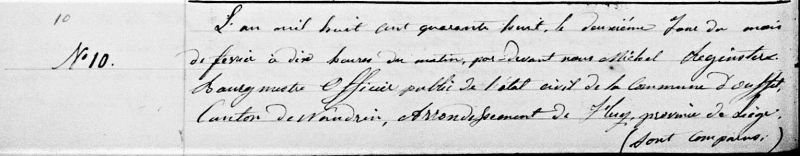 10
L'an mil huit cent quarante huit, le deuxième Jour du mois
No 10. de fevrier à dix heures du matin, par-devant nous Michel Reginster
Bourgmestre Officier public de l'état civil de la Commune D'ouffet,
Canton de Nandrin, Arrondissement de Huy, province de Liége.
(Sont comparus;)